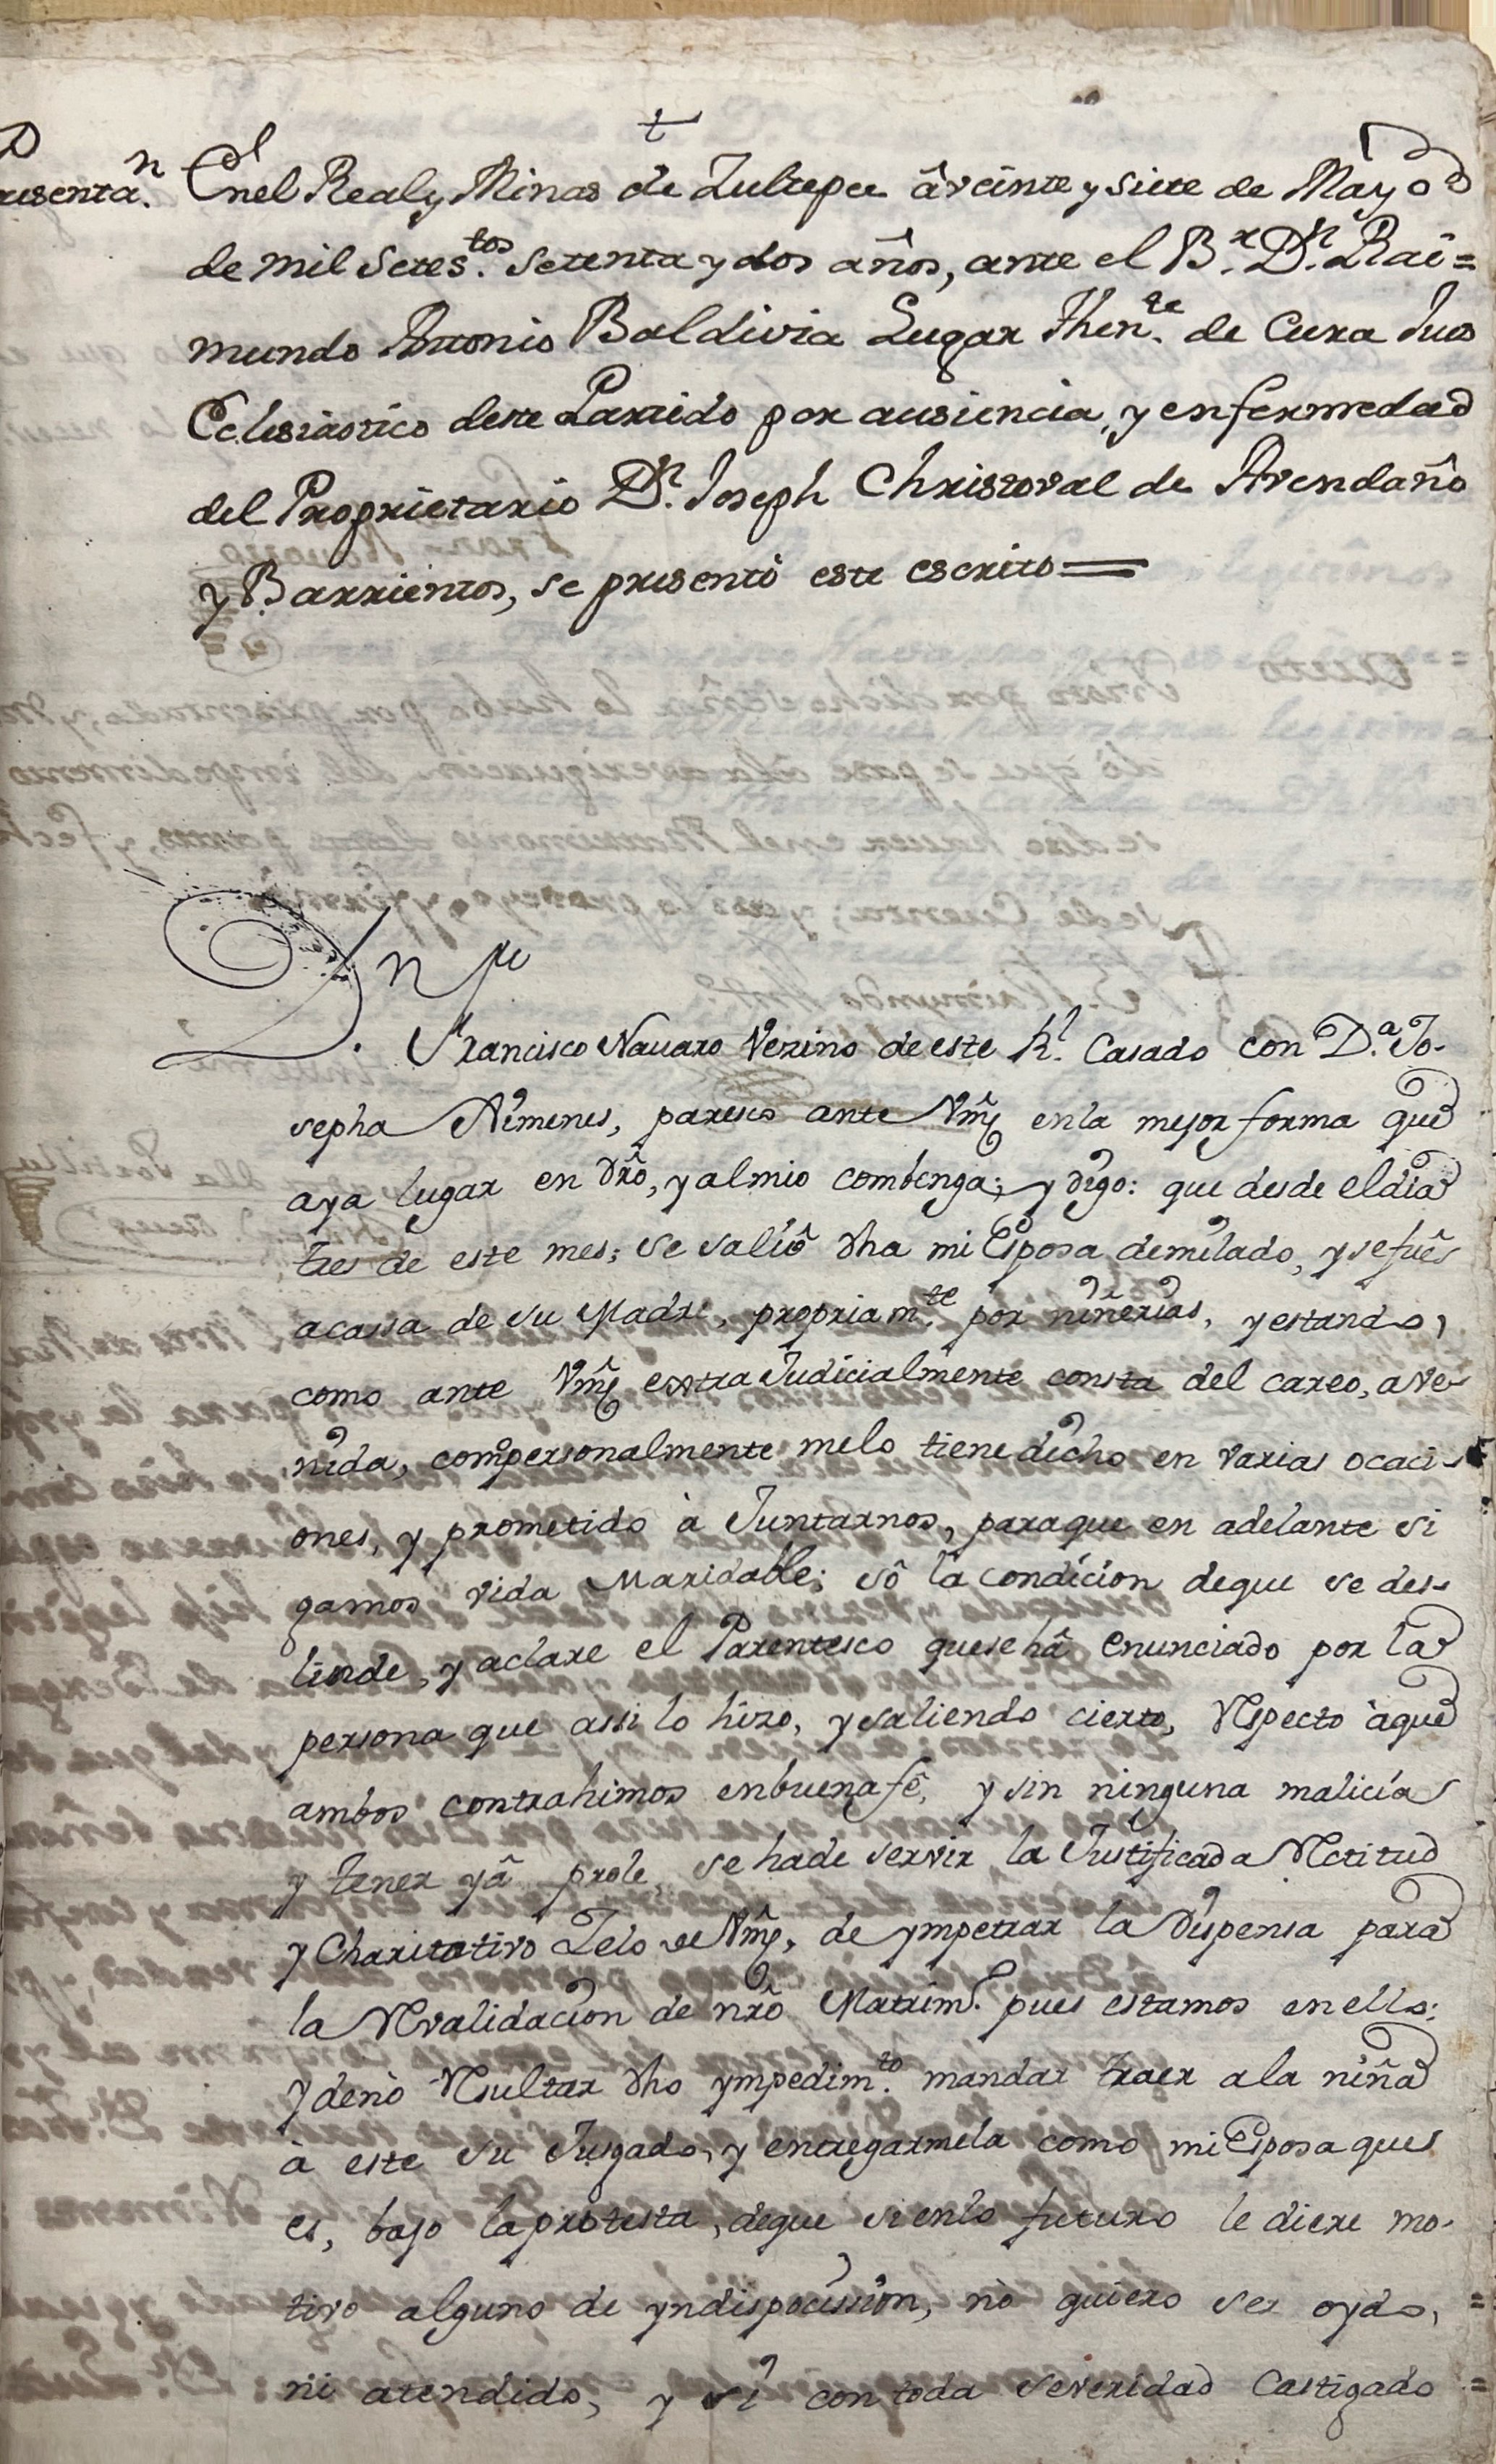 †
Presentaⁿ. En el Real y Minas de Zultepec â veinte y siete de Mayo
de mil setes.ᵗᵒˢ setenta y dos años, ante el B.ʳ D.ⁿ Rai=
mundo Antonio Baldivia Lugar Then.ᵗᵉ de Cura Jues
Eclesiastico deste Partido por ausencia, y enfermedad
del Proprietario D.ⁿ Joseph Christoval de Avendaño
y Barrientos, se presentò este escrito =
Francisco Navaro Vezino de este R.ˡ Casado con D.ª Jo-
sepha Ximenes, paresco ante Vmê en la mejor forma que
aya lugar en drô, y al mio combenga; y digo: que desde el dia
tres de este mes; se saliô dha mi Esposa de mi lado, y se fuê
a cassa de su Madre, propriam.ᵗᵉ por niñerias, y estando,
como ante Vmê extra Judicialmente consta del careo, ave-
nida, como personalmente me lo tiene dicho en varias ocaci-
ones, y prometido à Juntarnos, para que en adelante si
gamos vida Maridable; sô la condicion de que se des-
linde, y aclare el Parentesco que se hâ enunciado por la
persona que assi lo hizo, y saliendo cierto, respecto à que
ambos contrahimos en buena fê, y sin ninguna malicia
y tener yâ prole, se ha de servir la Justificada rectitud
y Charitativo Zelo de Vmê, de ympetrar la dispensa para
la revalidacion de nrô Matrim.º pues estamos en ello;
y de nò resultar dho ympedim.ᵗᵒ mandar traer a la niña
à este su Jusgado, y entregarmela como mi Esposa que
es, bajo la protesta, de que si en lo futuro le diere mo-
tivo alguno de yndispocission, nò quiero ser oydo,
ni atendido, y sì con toda severidad Castigado